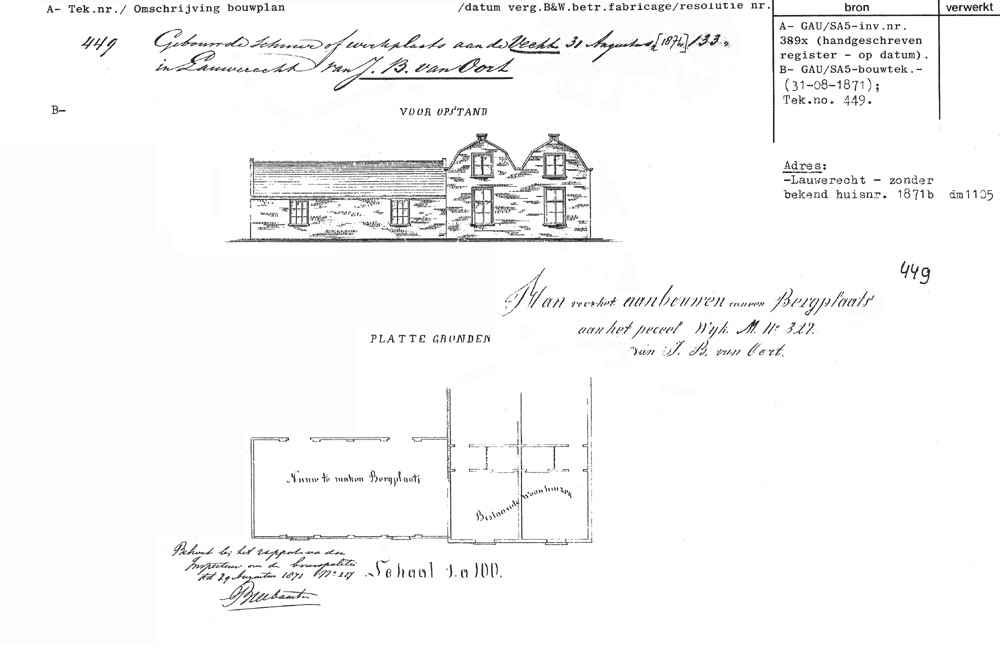 A- Tek.nr./ Omschrijving bouwplan /datum verg.B&W.betr.fabricage/resolutie nr.
bron
verwerkt
449 Gebouwde schuur of werkplaats aan de Vecht 31 Augustus [1871] 133
in Lauwerecht van J. B. van Oort
A- GAU/SA5-inv.nr.
389x (handgeschreven
register - op datum).
B- GAU/SA5-bouwtek.-
(31-08-1871);
Tek.no. 449.
B-
VOOR OPSTAND
Adres:
-Lauwerecht - zonder
bekend huisnr. 1871b dm1105
449
Plan voor het aanbouwen van een Bergplaats
aan het perceel Wijk M. No 327.
van J. B. van Oort.
PLATTE GRONDEN
Nieuw te maken Bergplaats
Bestaande Woonhuizen
Behoort bij het rapport van den
Inspecteur van de bouwpolitie
dd 29 Augustus 1871 No 227
Schaal 1 a 100.